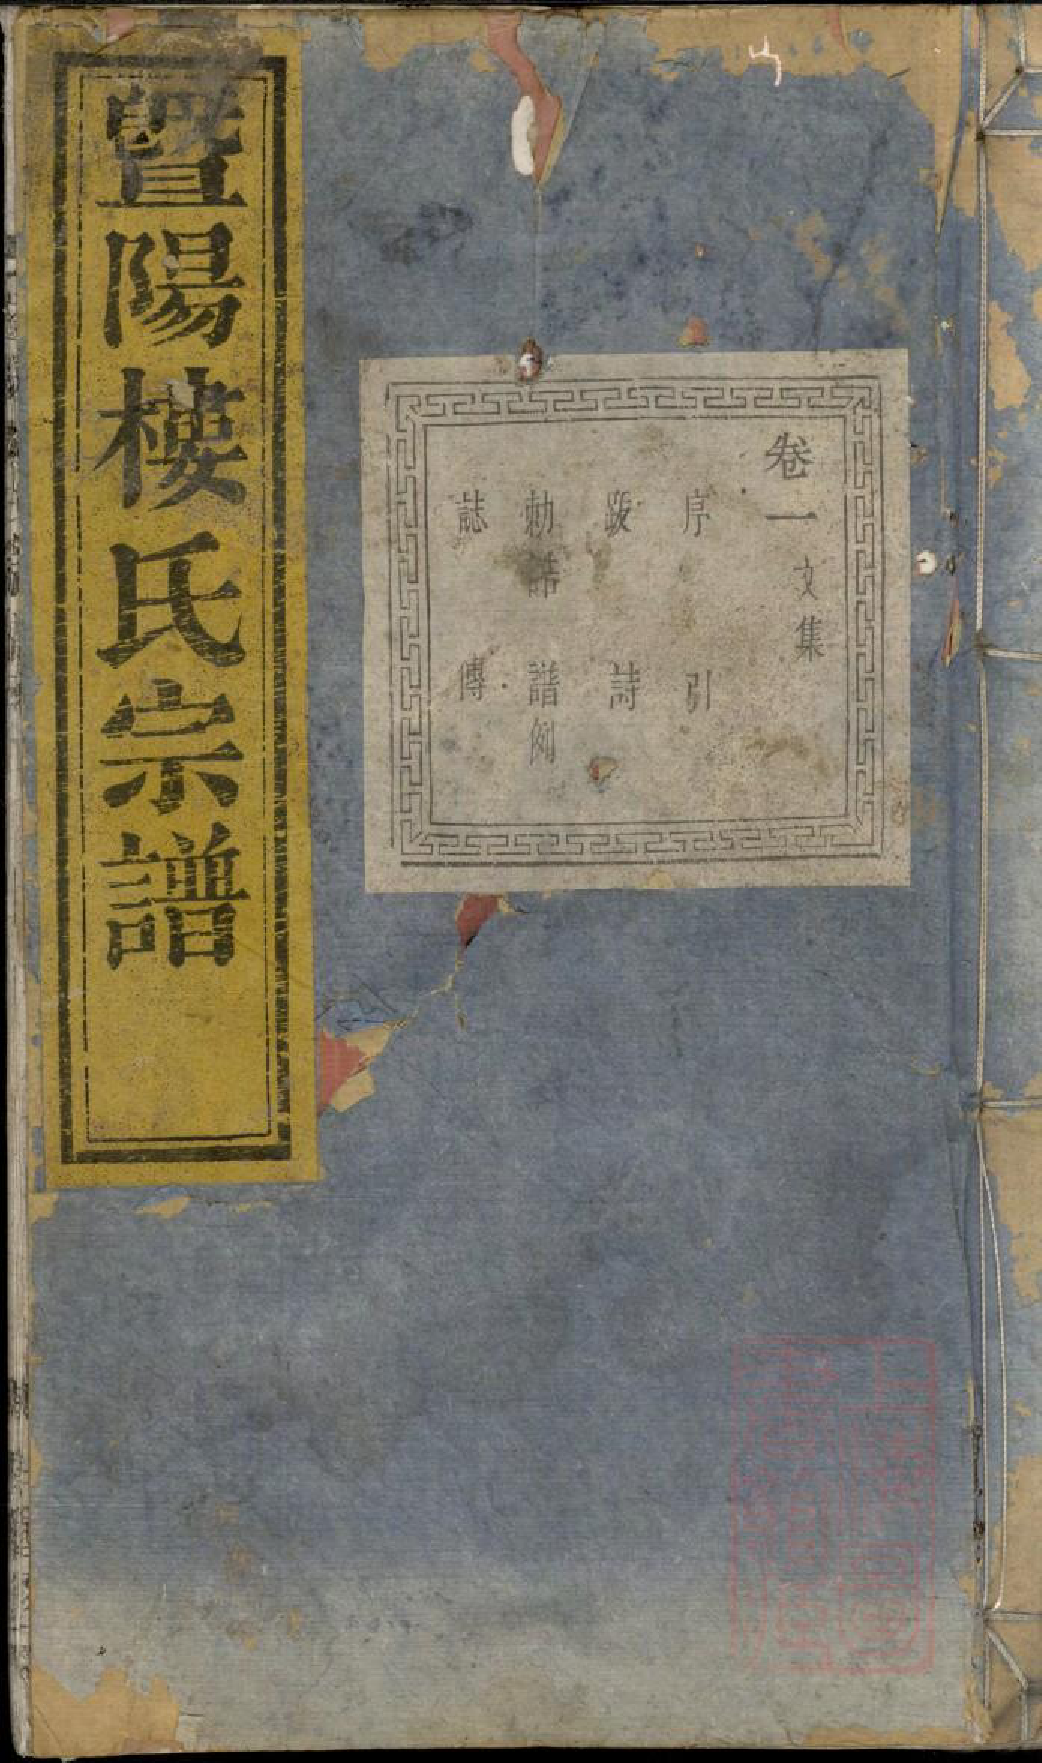 暨陽樓氏宗譜
卷一 文集
序 引
跋 詩
勅誥 譜例
誌 傳